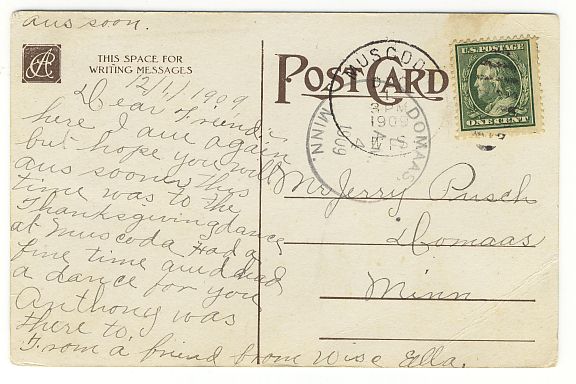 ans soon.
THIS SPACE FOR
WRITING MESSAGES
POST CARD
12/1/1909
Dear Friend
here I am again
but hope you will
ans sooner this
time was to the
Thanksgiving dance
at Muscoda Had a
fine time and had
a dance for you
Anthony was
there to.
From a friend from Wisc Ella.
MUSCODA
3 PM
1909
DOMAAS,
MINN.
1909
U.S. POSTAGE
ONE CENT
Mr Jerry Pusch
Domaas
Minn